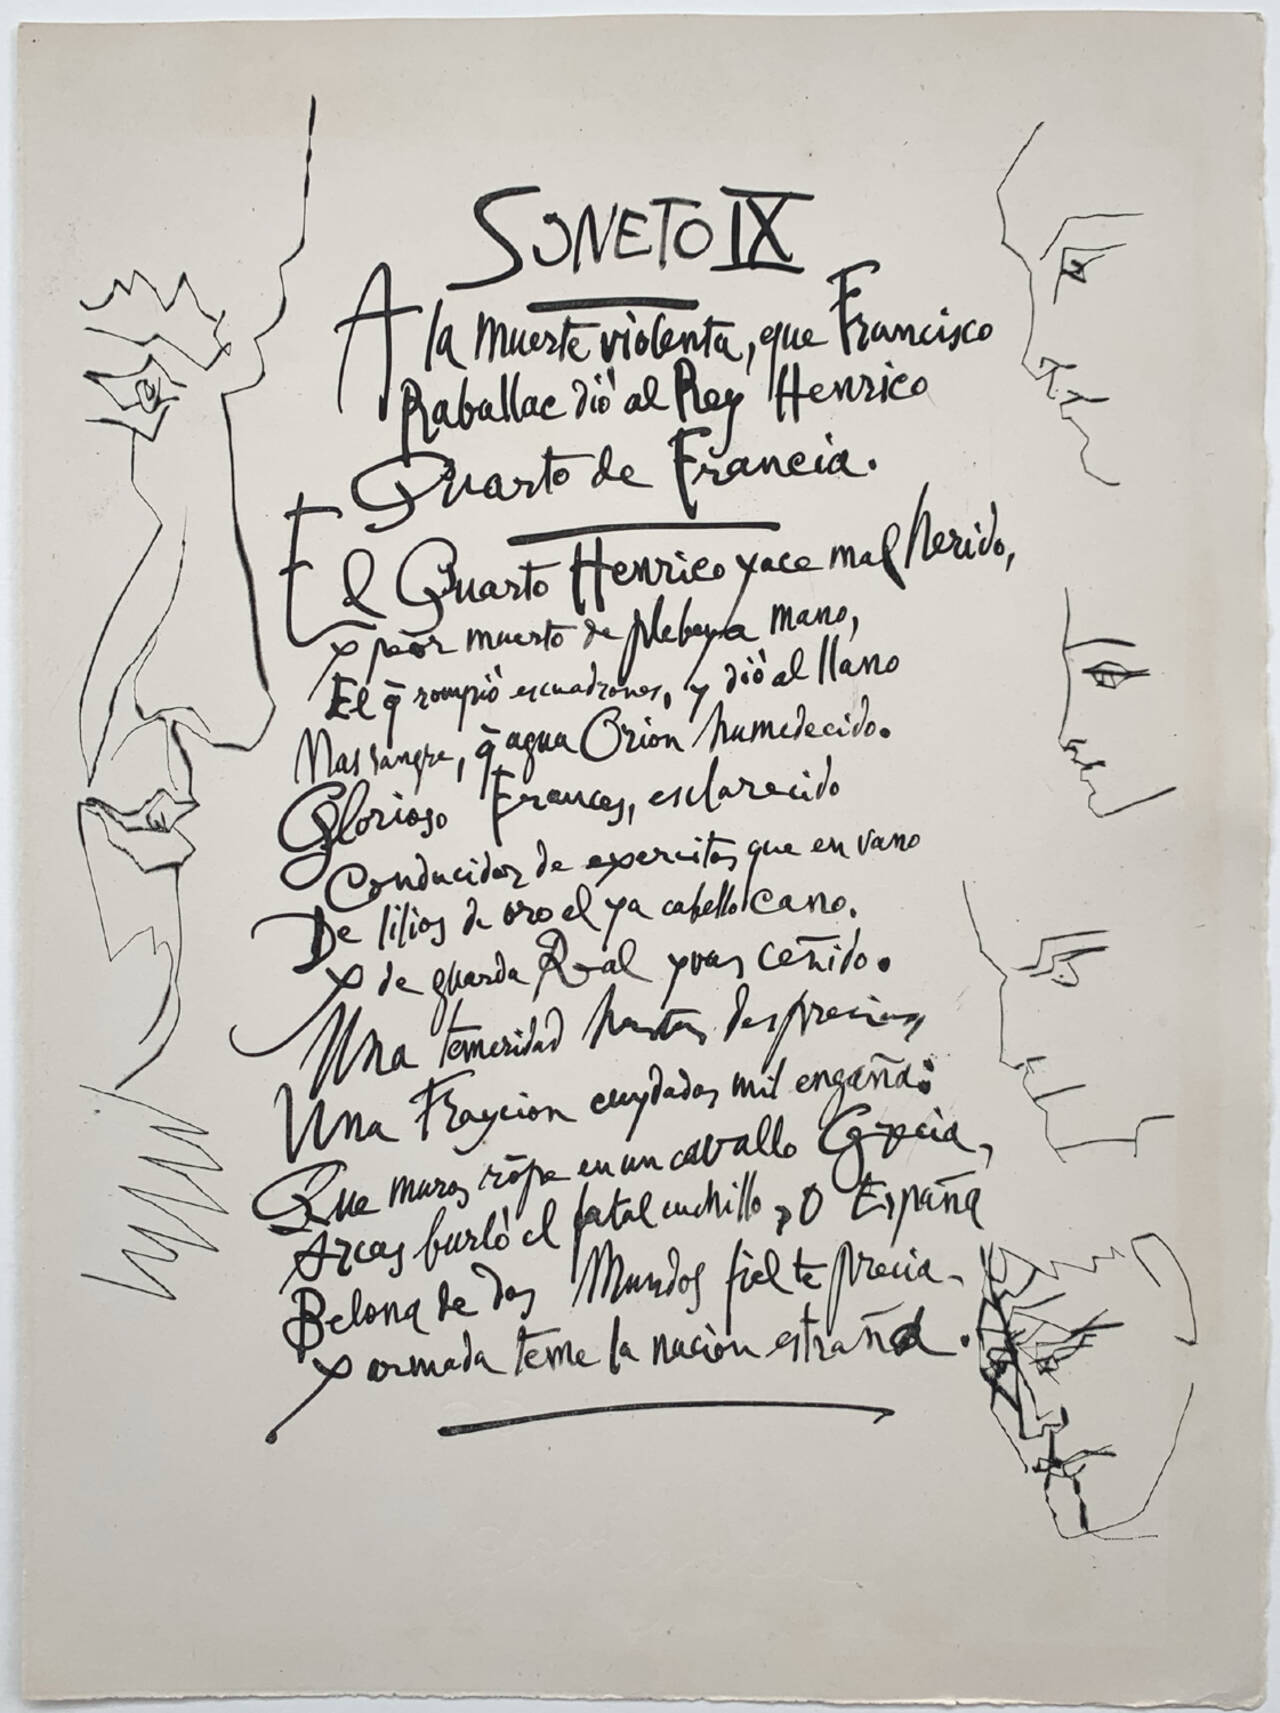 SONETO IX
A la muerte violenta, que Francisco
Raballac dió al Rey Henrico
Quarto de Francia.
El Quarto Henrico yace mal herido,
y peor muerto de plebeya mano,
El q̄ rompió escuadrones, y dió al llano
Mas sangre, q̄ agua Orion humedecido.
Glorioso Frances, esclarecido
Conducidor de exercitos que en vano
De lilios de oro el ya cabello cano,
y de guarda Real yvas ceñido.
Una temeridad hastas desprecia,
Una Traycion cuydados mil engaña:
Que muros rōpe en un cavallo Grecia,
Arcas burló el fatal cuchillo, O España
Belona de dos Mundos fiel te precia
y armada teme la nación estraña.